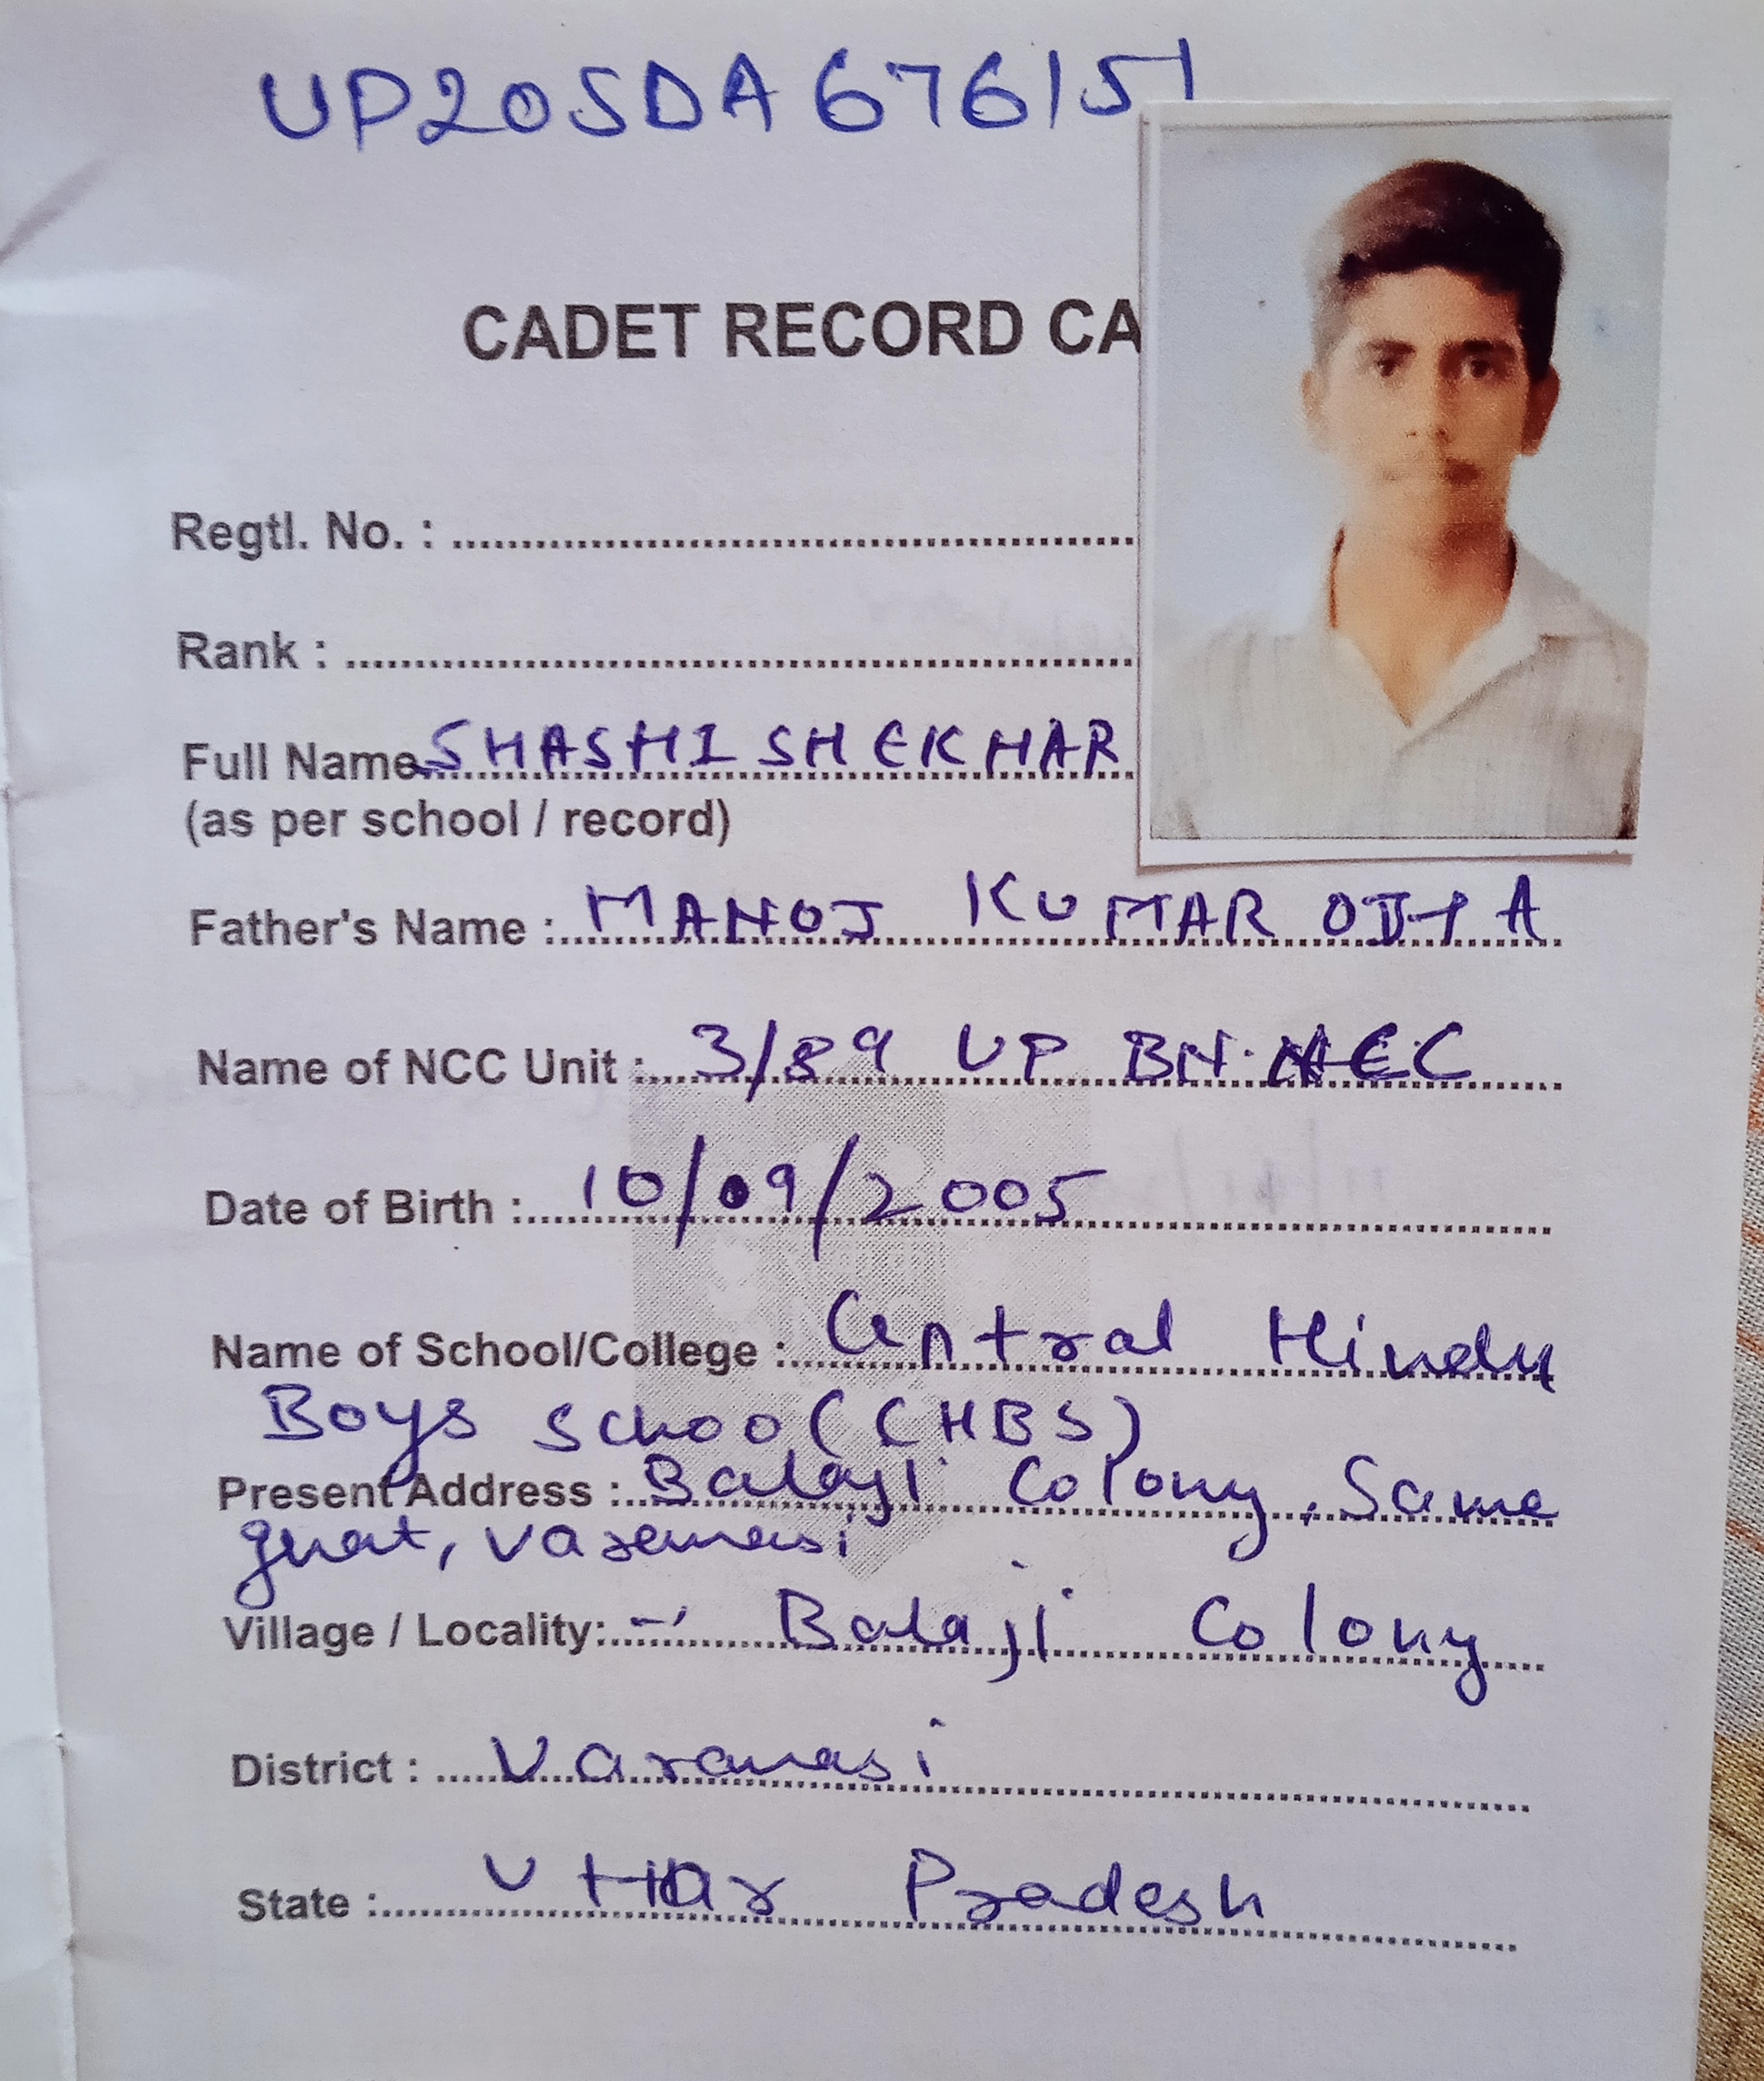 UP20SDA676151
CADET RECORD CA
Regtl. No. :
Rank :
Full Name SHASHI SHEKHAR
(as per school / record)
Father's Name : MANOJ KUMAR OJHA
Name of NCC Unit : 3/89 UP BN. NCC
Date of Birth : 10/09/2005
Name of School/College : Central Hindu
Boys School (CHBS)
Present Address : Balaji Colony, Same
ghat, Varanasi
Village / Locality: - Balaji Colony
District : Varanasi
State : Uttar Pradesh